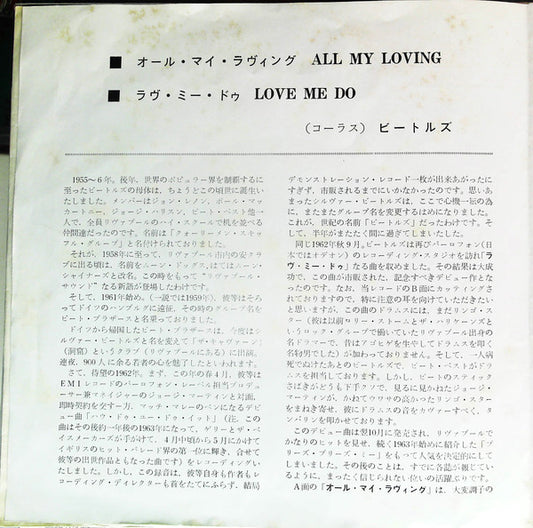 ■ オール・マイ・ラヴィング ALL MY LOVING
■ ラヴ・ミー・ドゥ LOVE ME DO
（コーラス）ビートルズ
1955～6年。後年、世界のポピュラー界を制覇するに
至ったビートルズの母体は、ちょうどこの頃世に誕生い
たしました。メンバーはジョン・レノン、ポール・マッ
カートニー、ジョージ・ハリスン、ピート・ベスト他一
人で、全員リヴァプールのハイ・スクールで机を並べる
仲間達だったのです。名前は「クォーリーメン・スキッ
フル・グループ」と名付けられておりました。
それが、1958年に至って、リヴァプール市内の安クラ
ブに出る頃は、名前をハーン・ドッグス、はてはハーン・
シャイナーズと改名。この時をもって“リヴァプール・
サウンド”なる新語が登場したわけです。
そして、1961年始め。（一説では1959年）、彼等はそろ
ってドイツのハンブルグに遠征、その時のグループ名を
ビート・ブラザースと名乗っておりました。
ドイツから帰国したビート・ブラザースは、今度はシ
ルヴァー・ビートルズと名を変えて「ザ・キャヴァーン」
（洞窟）というクラブ（リヴァプールにある）に出演、
連夜、900人に余る若者の心を魅了したといわれます。
さて、待望の1962年。まず、この年の春4月、彼等は
EMIレコードのパーロフォン・レーベル担当プロデュ
ーサー兼マネイジャーのジョージ・マーティンと対面、
即時契約を交す一方、マッチ・マレーのペンになるデビ
ュー曲「ハウ・ドゥ・ユー・ドゥ・イット」（注、この
曲はその後約一年後の1963年になって、ゲリーとザ・ペ
イスメーカーズが手がけて、4月中頃から5月にかけて
イギリスのヒット・パレード界の第一位に輝き、合せて
彼等の出世作品ともなった曲です）をレコーディングい
たしました。しかし、この録音は、彼等自身も作者もレ
コーディング・ディレクターも首をたてにふらず、結局
デモンストレーション・レコード一枚が出来あがったに
すぎず、市販されるまでにいかなかったのです。思いあ
まったシルヴァー・ビートルズは、ここで心機一転の為
に、またまたグループ名を変更するはめになりました。
これが、世紀の名前「ビートルズ」だったわけです。そ
して、半年がまたたく間に過ぎてしまいした。
同じ1962年秋9月。ビートルズは再びパーロフォン（日
本ではオデオン）のレコーディング・スタジオを訪れ「ラ
ヴ・ミー・ドゥ」なる曲を収めました。その結果は大成
功で、この曲が市販された、記念すべきデビュー作とな
ったのです。なお、当レコードのB面にカッティングさ
れておりますので、特に注意の耳を向けていただきたい
と思いますが、この曲のドラムスには、まだリンゴ・ス
ター（彼は以前ロリー・ストームとザ・ハリケーンズと
いうロック・グループで働いていたリヴァプール出身の
名ドラマーで、昔はアゴヒゲを生やしてドラムスを叩く
名物男でした）が加わっておりません。そして、一人病
死でぬけたあとのビートルズで、ピート・ベストがドラム
スを担当しておりす。しかし、ピートのスティックさ
ばきがどうも下手クソで、見るに見かねたジョージ・
マーティンが、かねてウワサの高かったリンゴ・スター
をまねき寄せ、彼にドラムスの音をカヴァーすべく、タ
ンバリンを叩かせております。
このデビュー曲は翌10月に発売され、リヴァプールで
かなりのヒットを見せ、続く1963年始めに紹介した「プ
リーズ・プリーズ・ミー」をもつて人気を決定的にして
しまいました。その後のことは、すでに各誌が報じてい
るように、まったく信じられない位の活躍ぶりです。
A面の「オール・マイ・ラヴィング」は、大変調子の